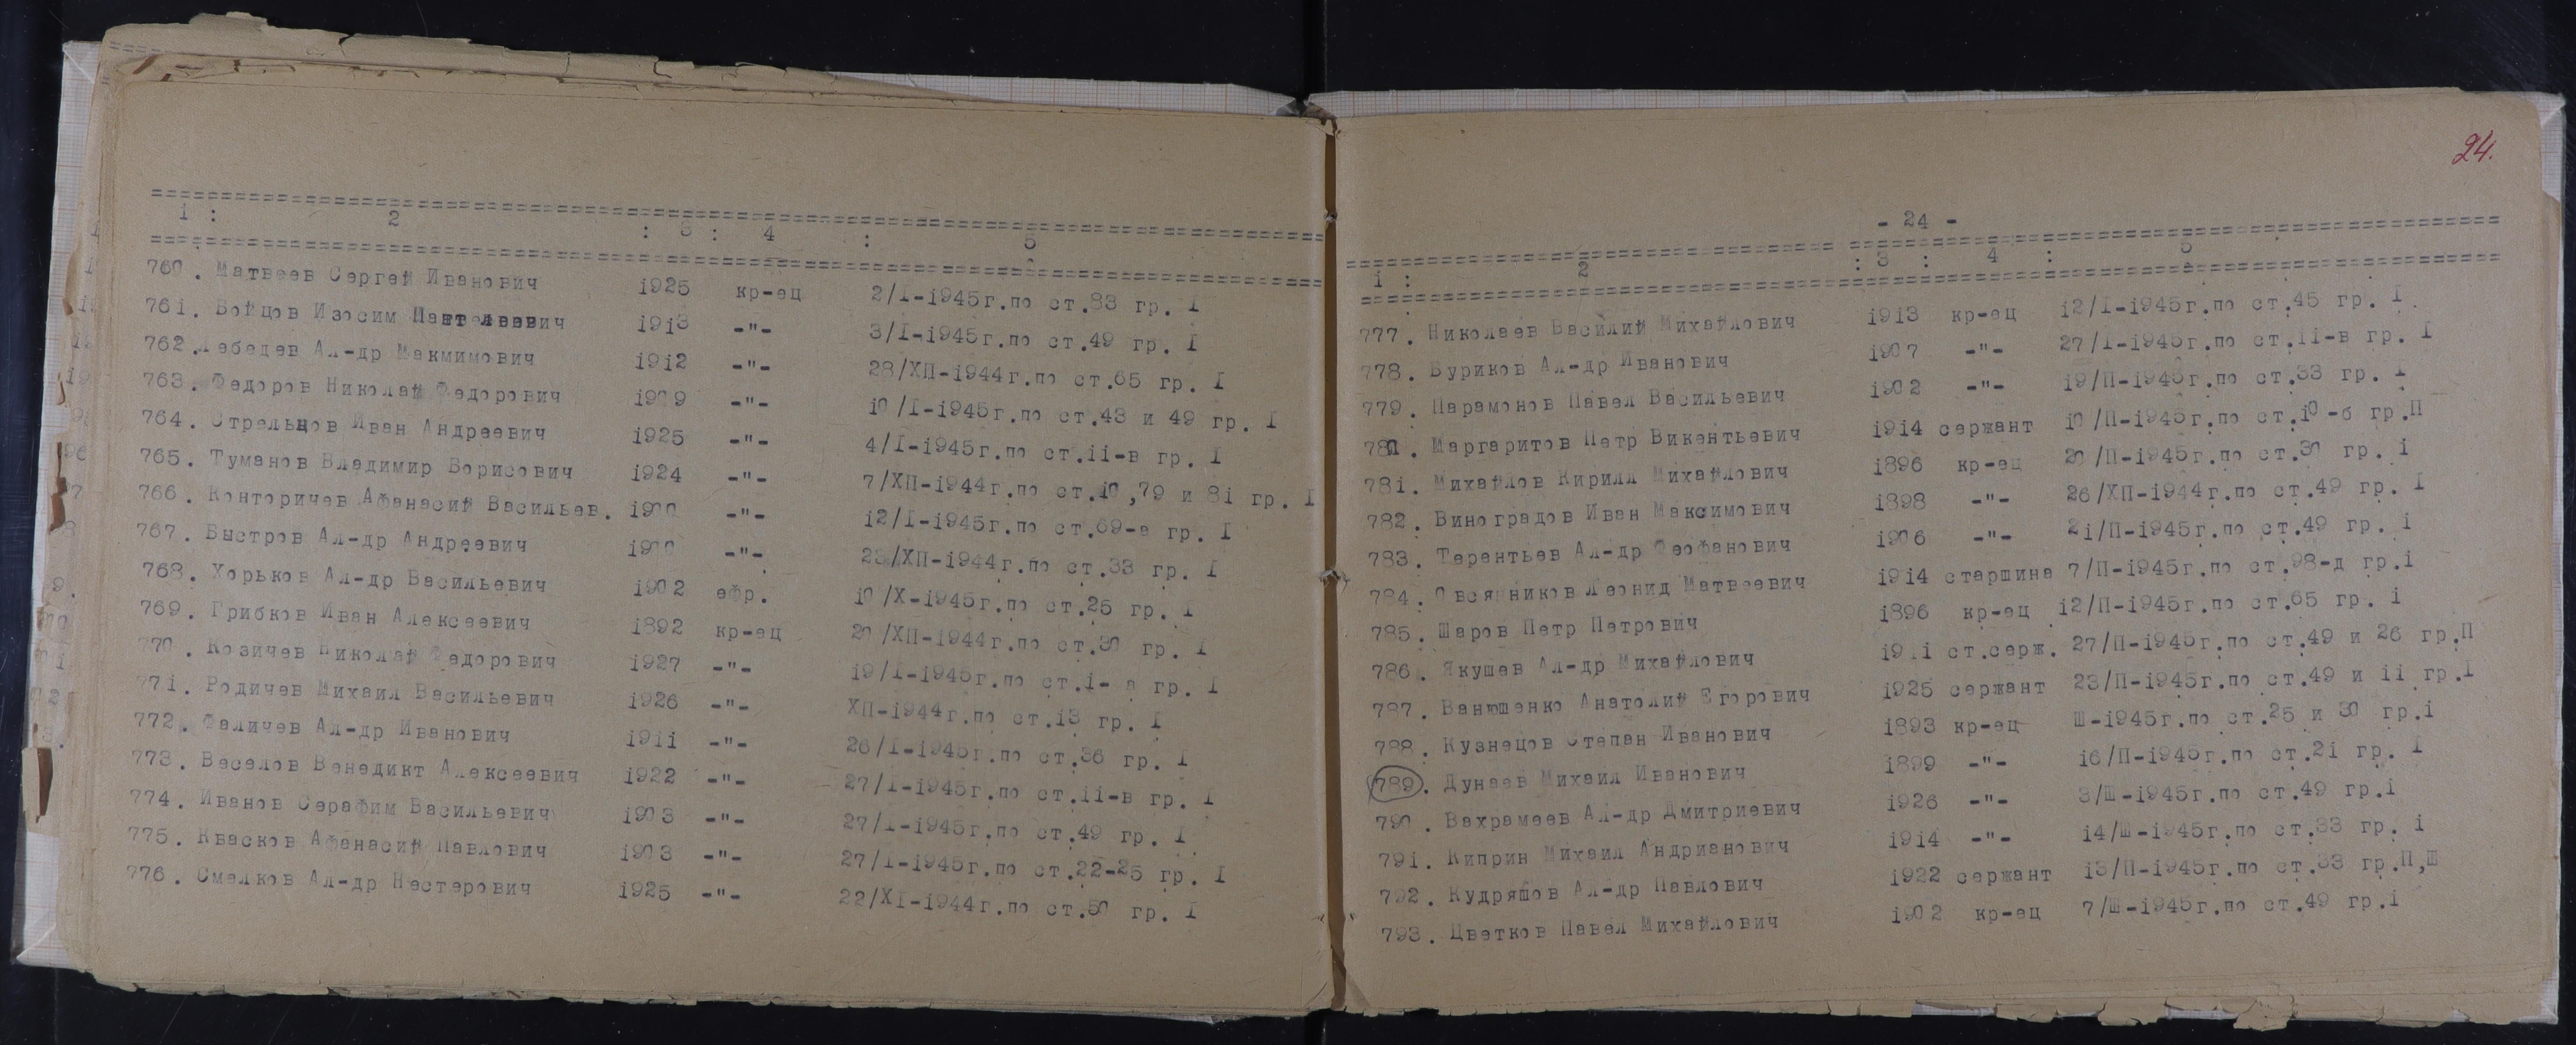 1 : 2 : 3 : 4 : 5
760. Матвеев Сергей Иванович 1925 кр-ец 2/I-1945г.по ст.83 гр. I
761. Бойцов Изосим Пантелеевич 1913 -"- 3/I-1945г.по ст.49 гр. I
762. Лебедев Ал-др Макмимович 1912 -"- 28/ХП-1944г.по ст.65 гр. I
763. Федоров Николай Федорович 1909 -"- 10/I-1945г.по ст.43 и 49 гр. I
764. Стрельцов Иван Андреевич 1925 -"- 4/I-1945г.по ст.11-в гр. I
765. Туманов Владимир Борисович 1924 -"- 7/ХП-1944г.по ст.10,79 и 81 гр. I
766. Конторичев Афанасий Васильев. 1900 -"- 12/I-1945г.по ст.69-а гр. I
767. Быстров Ал-др Андреевич 1900 -"- 23/ХП-1944г.по ст.33 гр. I
768. Хорьков Ал-др Васильевич 1902 ефр. 10/Х-1945г.по ст.25 гр. I
769. Грибков Иван Алексеевич 1892 кр-ец 20/ХП-1944г.по ст.30 гр. I
770. Козичев Николай Федорович 1927 -"- 19/I-1945г.по ст.1- а гр. I
771. Родичев Михаил Васильевич 1926 -"- ХП-1944г.по ст.13 гр. I
772. Фаличев Ал-др Иванович 1911 -"- 26/I-1945г.по ст.36 гр. I
773. Веселов Венедикт Алексеевич 1922 -"- 27/I-1945г.по ст.11-в гр. I
774. Иванов Серафим Васильевич 1903 -"- 27/I-1945г.по ст.49 гр. I
775. Квасков Афанасий Павлович 1903 -"- 27/I-1945г.по ст.22-25 гр. I
776. Смелков Ал-др Нестерович 1925 -"- 22/XI-1944г.по ст.50 гр. I
24.
- 24 -
1 : 2 : 3 : 4 : 5
777. Николаев Василий Михайлович 1913 кр-ец 12/I-1945г.по ст.45 гр. I
778. Буриков Ал-др Иванович 1907 -"- 27/I-1945г.по ст.11-в гр. I
779. Парамонов Павел Васильевич 1902 -"- 19/П-1945г.по ст.33 гр. I
780. Маргаритов Петр Викентьевич 1914 сержант 10/П-1945г.по ст.10-б гр.П
781. Михайлов Кирилл Михайлович 1896 кр-ец 20/П-1945г.по ст.30 гр. 1
782. Виноградов Иван Максимович 1898 -"- 26/ХП-1944г.по ст.49 гр. I
783. Терентьев Ал-др Феофанович 1906 -"- 21/П-1945г.по ст.49 гр. 1
784. Овсянников Леонид Матвеевич 1914 старшина 7/П-1945г.по ст.98-д гр.1
785. Шаров Петр Петрович 1896 кр-ец 12/П-1945г.по ст.65 гр. 1
786. Якушев Ал-др Михайлович 1911 ст.серж. 27/П-1945г.по ст.49 и 26 гр.П
787. Ванюшенко Анатолий Егорович 1925 сержант 23/П-1945г.по ст.49 и 11 гр.I
788. Кузнецов Степан Иванович 1893 кр-ец Ш-1945г.по ст.25 и 30 гр.1
789. Дунаев Михаил Иванович 1899 -"- 16/П-1945г.по ст.21 гр. I
790. Вахрамеев Ал-др Дмитриевич 1926 -"- 3/Ш-1945г.по ст.49 гр.1
791. Киприн Михаил Андрианович 1914 -"- 14/Ш-1945г.по ст.33 гр. 1
792. Кудряшов Ал-др Павлович 1922 сержант 13/П-1945г.по ст.33 гр.П,Ш
793. Цветков Павел Михайлович 1902 кр-ец 7/Ш-1945г.по ст.49 гр.1